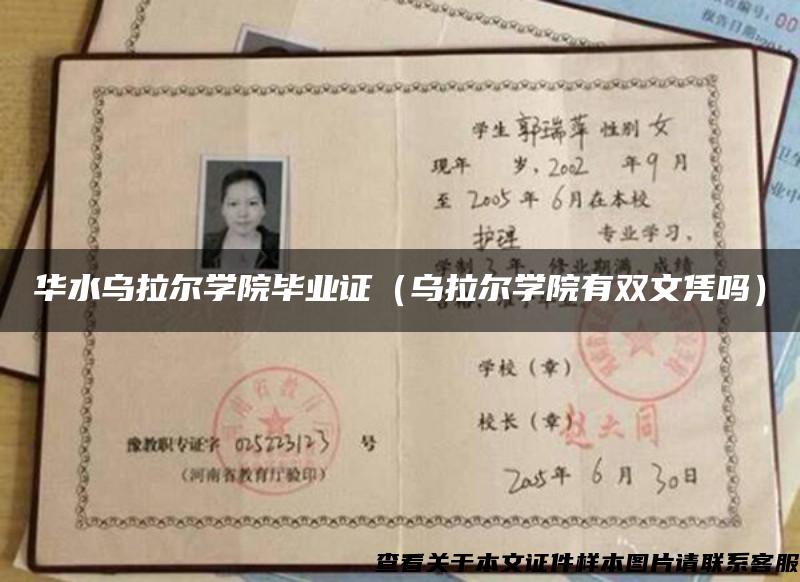 学生 郭瑞萍 性别 女
现年 岁,2002 年 9 月
至 2005 年 6 月在本校
护理 专业学习,
学制 3 年 修业期满,成绩
华水乌拉尔学院毕业证(乌拉尔学院有双文凭吗)
学校(章)
校长(章)
赵大同
豫教职专证字 025223123 号
(河南省教育厅验印)
2005 年 6 月 30 日
查看关于本文证件样本图片请联系客服